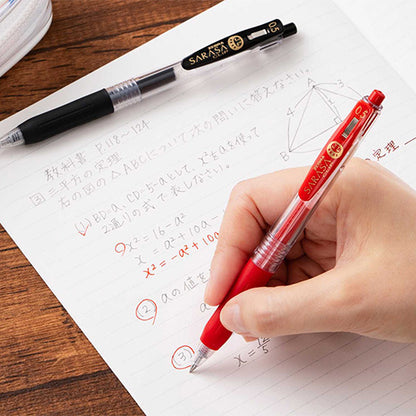 ZEBRA
SARASA
CLIP
0.5
教科書 P.118~124
3 三平方の定理
右の図の△ABCについて次の問いに答えなさい。
(1) BD=a, CD=5-aとして、x²をaを使って
2通りの式で表しなさい。
x²=16-a²
x²=-a²+10a
(2) aの値を
(3)
A
3
B
定理
ZEBRA
SARASA
0.5